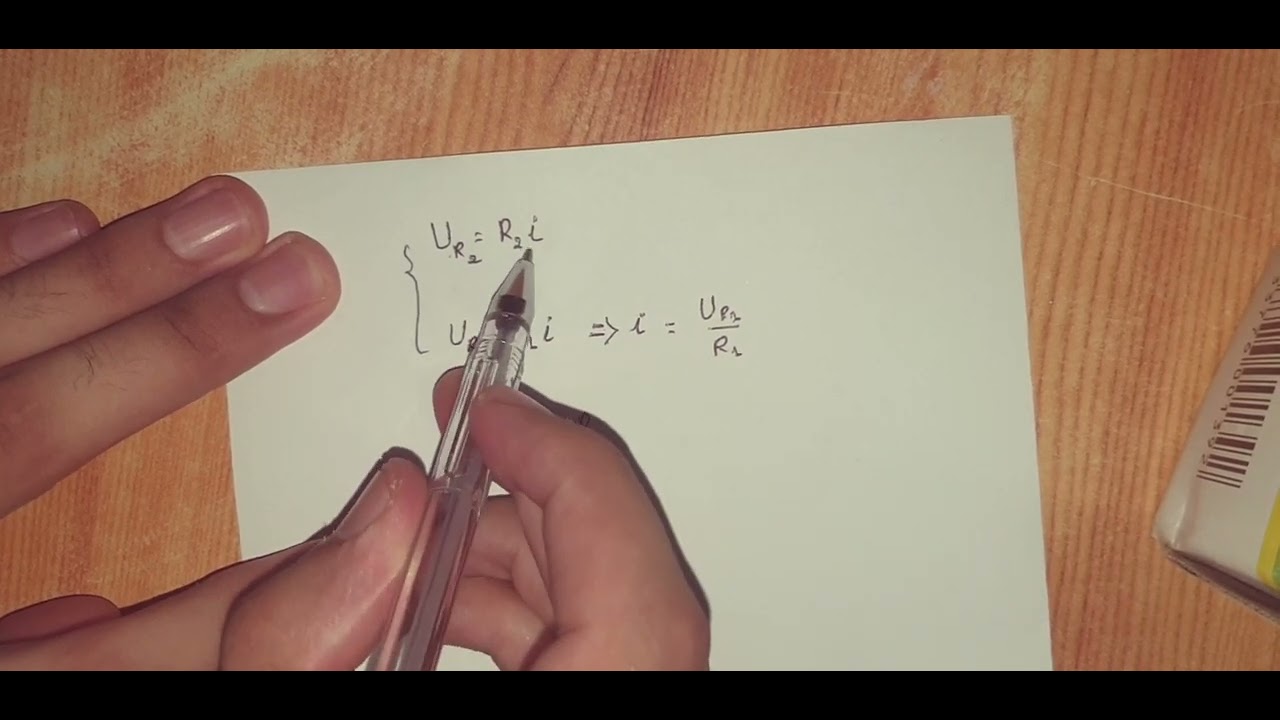 U_R₂ = R₂ i
U i => i = U_R₁ / R₁